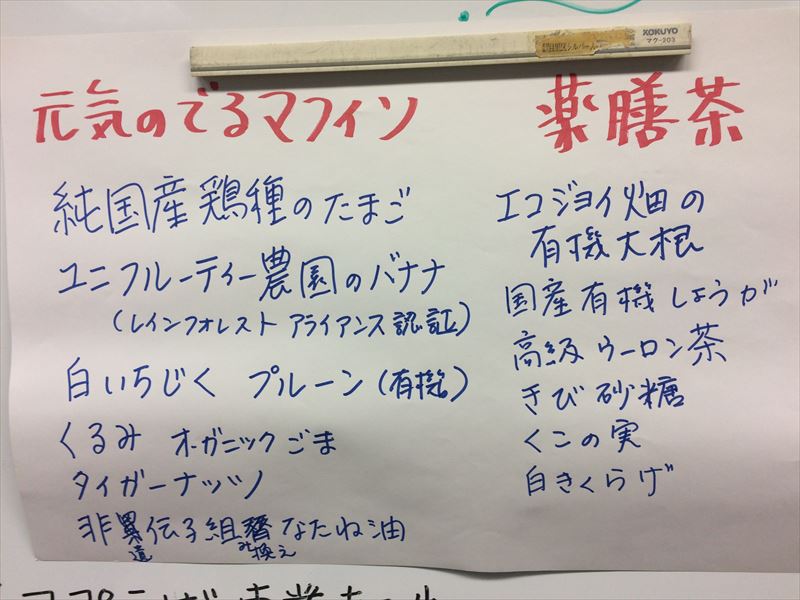 KOKUYO
マク-203
元気のでるマフィン
純国産鶏種のたまご
ユニフルーティー農園のバナナ
(レインフォレスト アライアンス認証)
白いちじく プルーン(有機)
くるみ オーガニックごま
タイガーナッツ
非遺伝子組み換えなたね油
薬膳茶
エコジョイ畑の
有機大根
国産有機しょうが
高級ウーロン茶
きび砂糖
くこの実
白きくらげ